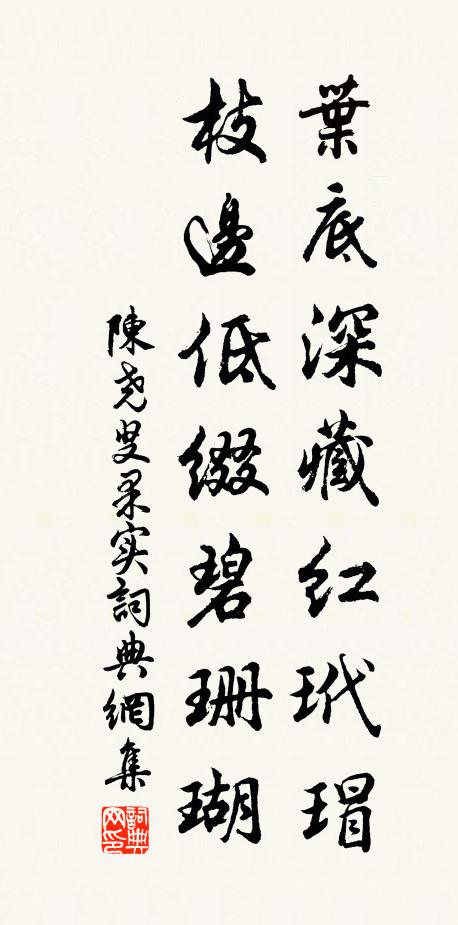 葉底深藏红玳瑁
枝邊低綴碧珊瑚
陳尧叟果实詞典網集
詞典网印